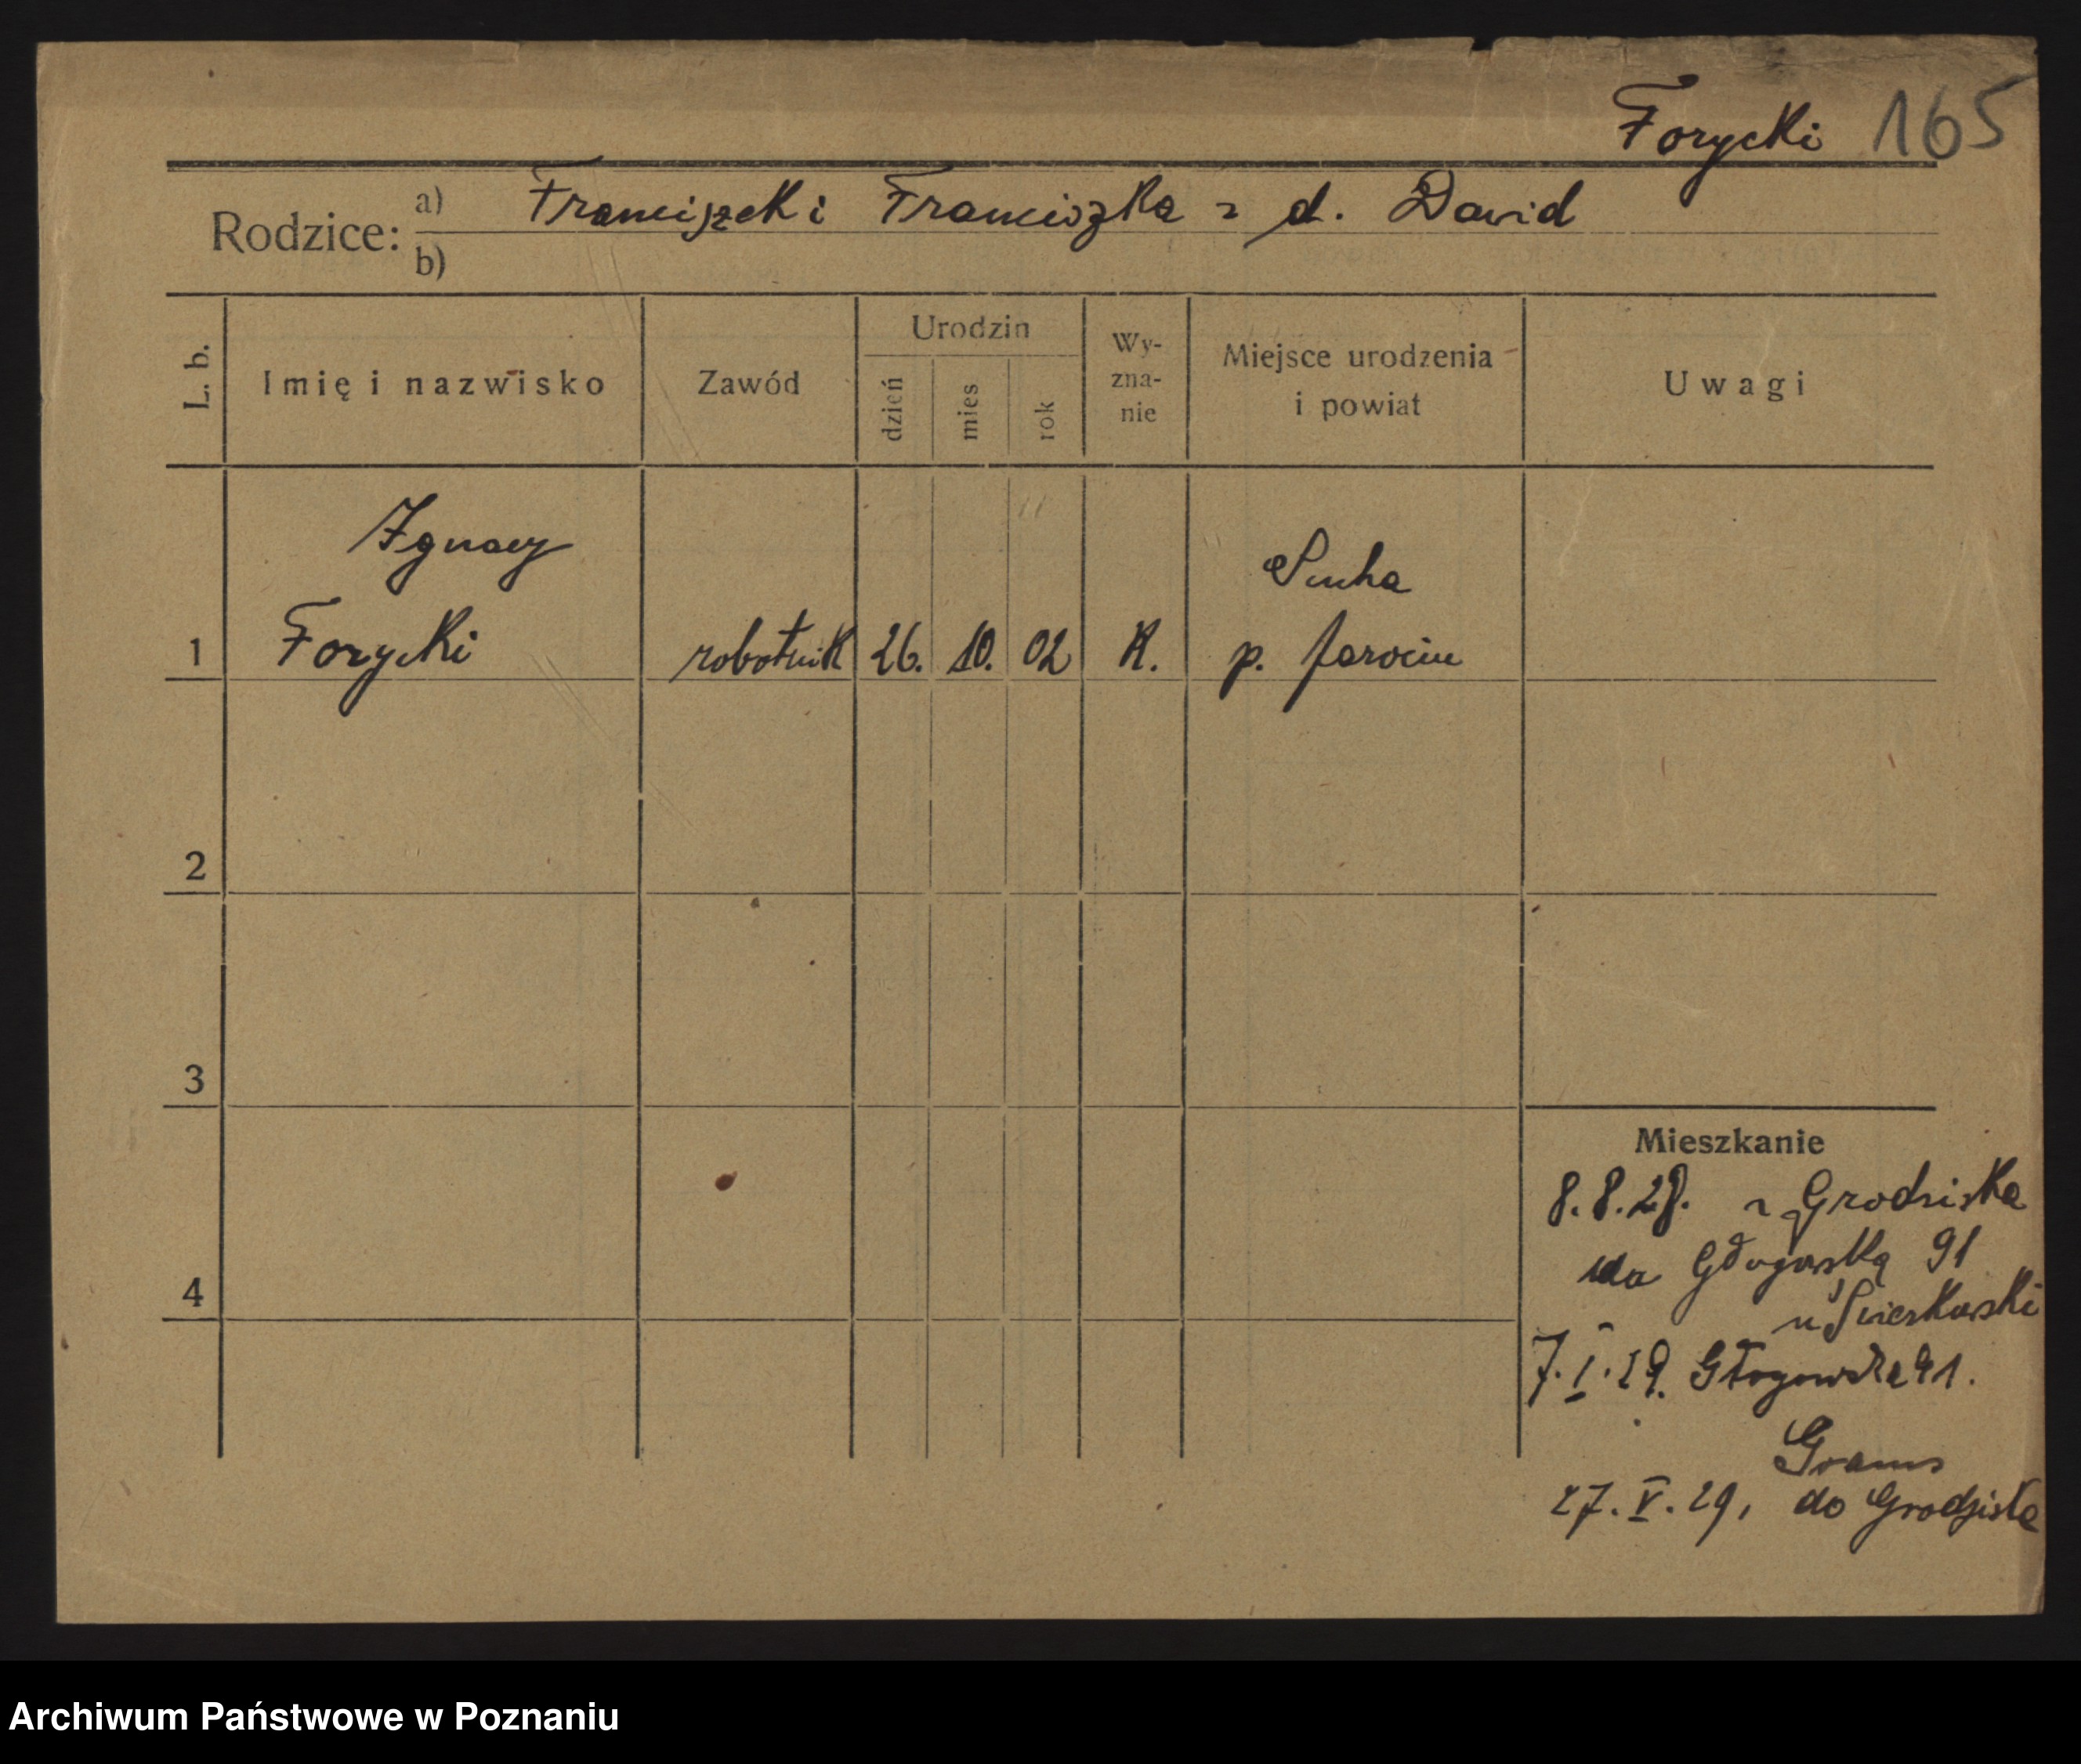 Forycki 165
Rodzice: a) Franciszek i Franciszka z d. Dawid
b)
L. b.
Imię i nazwisko
Zawód
Urodzin
dzień
mies
rok
Wy-
zna-
nie
Miejsce urodzenia
i powiat
Uwagi
Ignacy
Forycki
1
robotnik
26. 10. 02
K.
Sucha
p. Jarocin
2
3
4
Mieszkanie
8.8.28. z Grodziska
na Głogowską 91
u
7.I.29. Głogowska 91.
27.V.29, do Grodziska
Archiwum Państwowe w Poznaniu